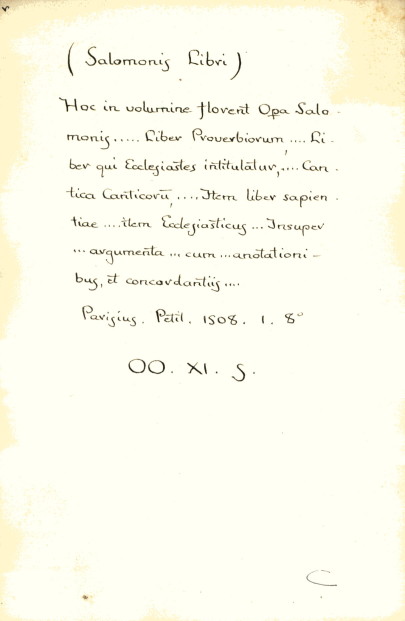 (Salomonis Libri)
Hoc in volumine florent Opa Salo-
monis..... Liber Proverbiorum .... Li-
ber qui Ecclesiastes intitulatur, .... Can-
tica Canticorū, .... Item liber sapien-
tiae .... item Ecclesiasticus ... Insuper
... argumenta ... cum ... anotationi-
bus, et concordantiis ....
Parisius. Petit. 1508. 1. 8º
OO. XI. S.
C